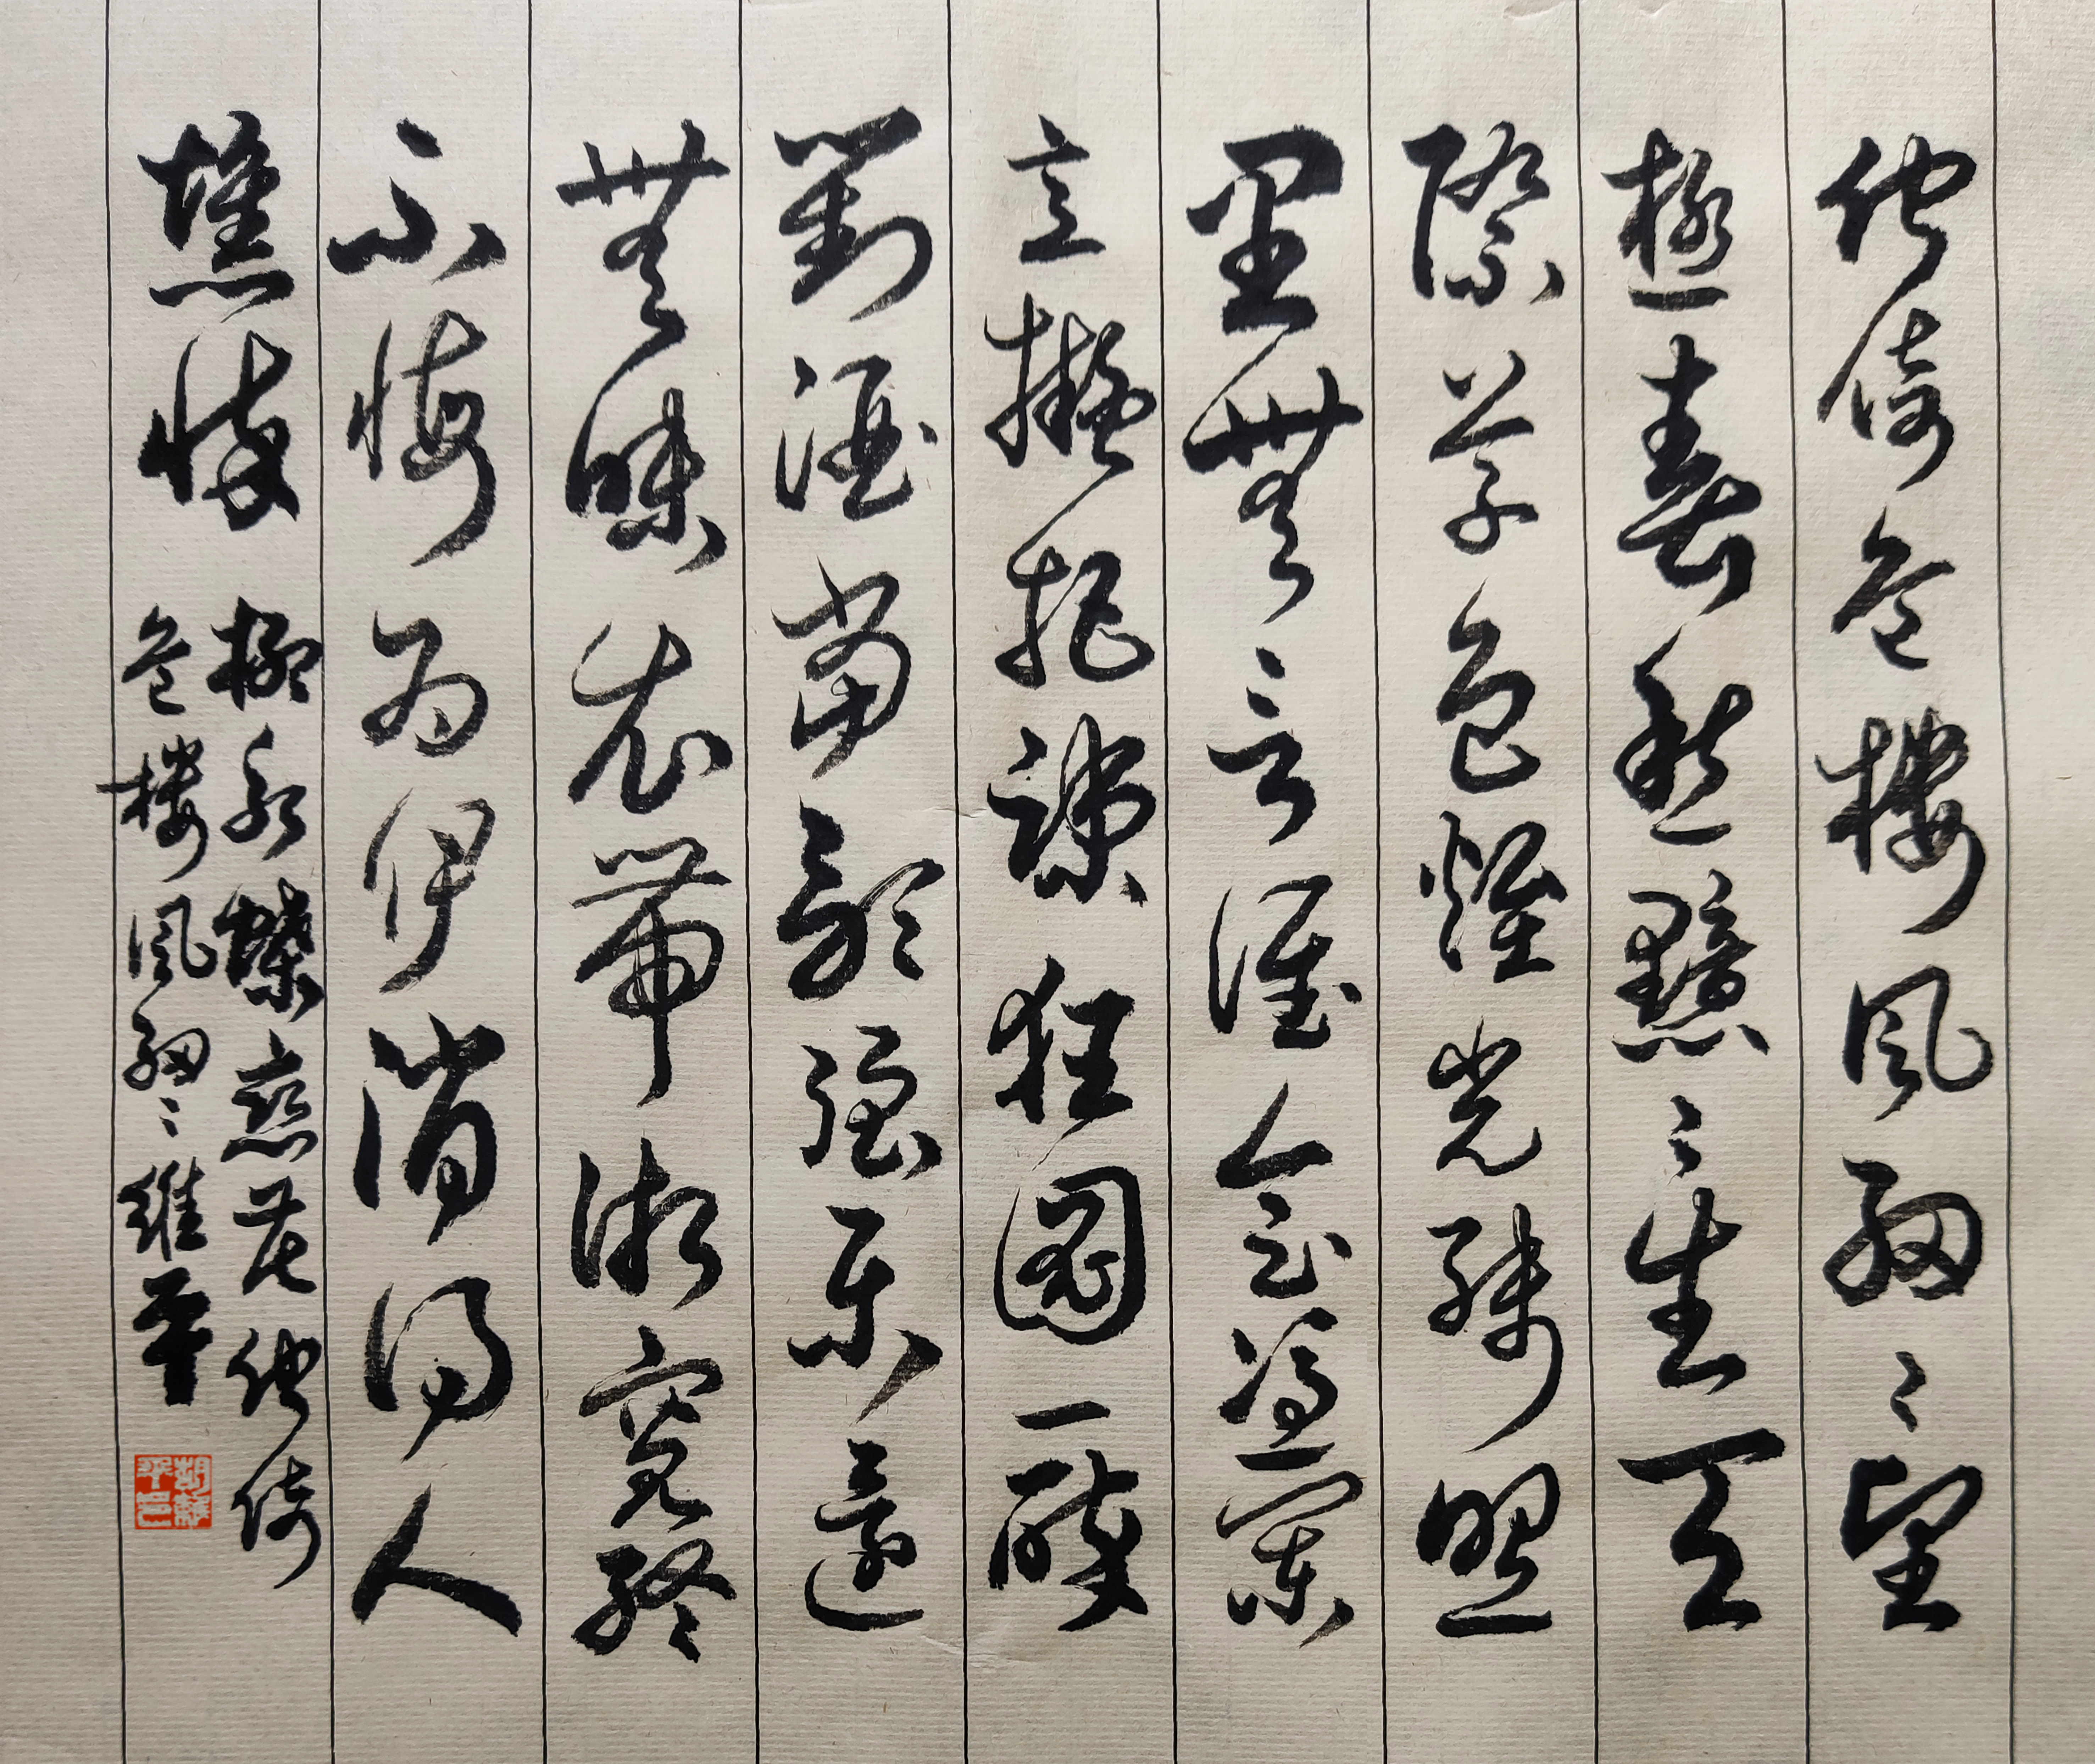 佇倚危樓風細〻望
極春愁黯〻生天
際草色煙光殘照
里無言誰會憑闌
意擬把疎狂圖一醉
對酒當歌強樂還
無味衣帶漸寬終
不悔為伊消得人
憔悴
柳永蝶戀花佇倚
危樓風細〻維平
胡維平印